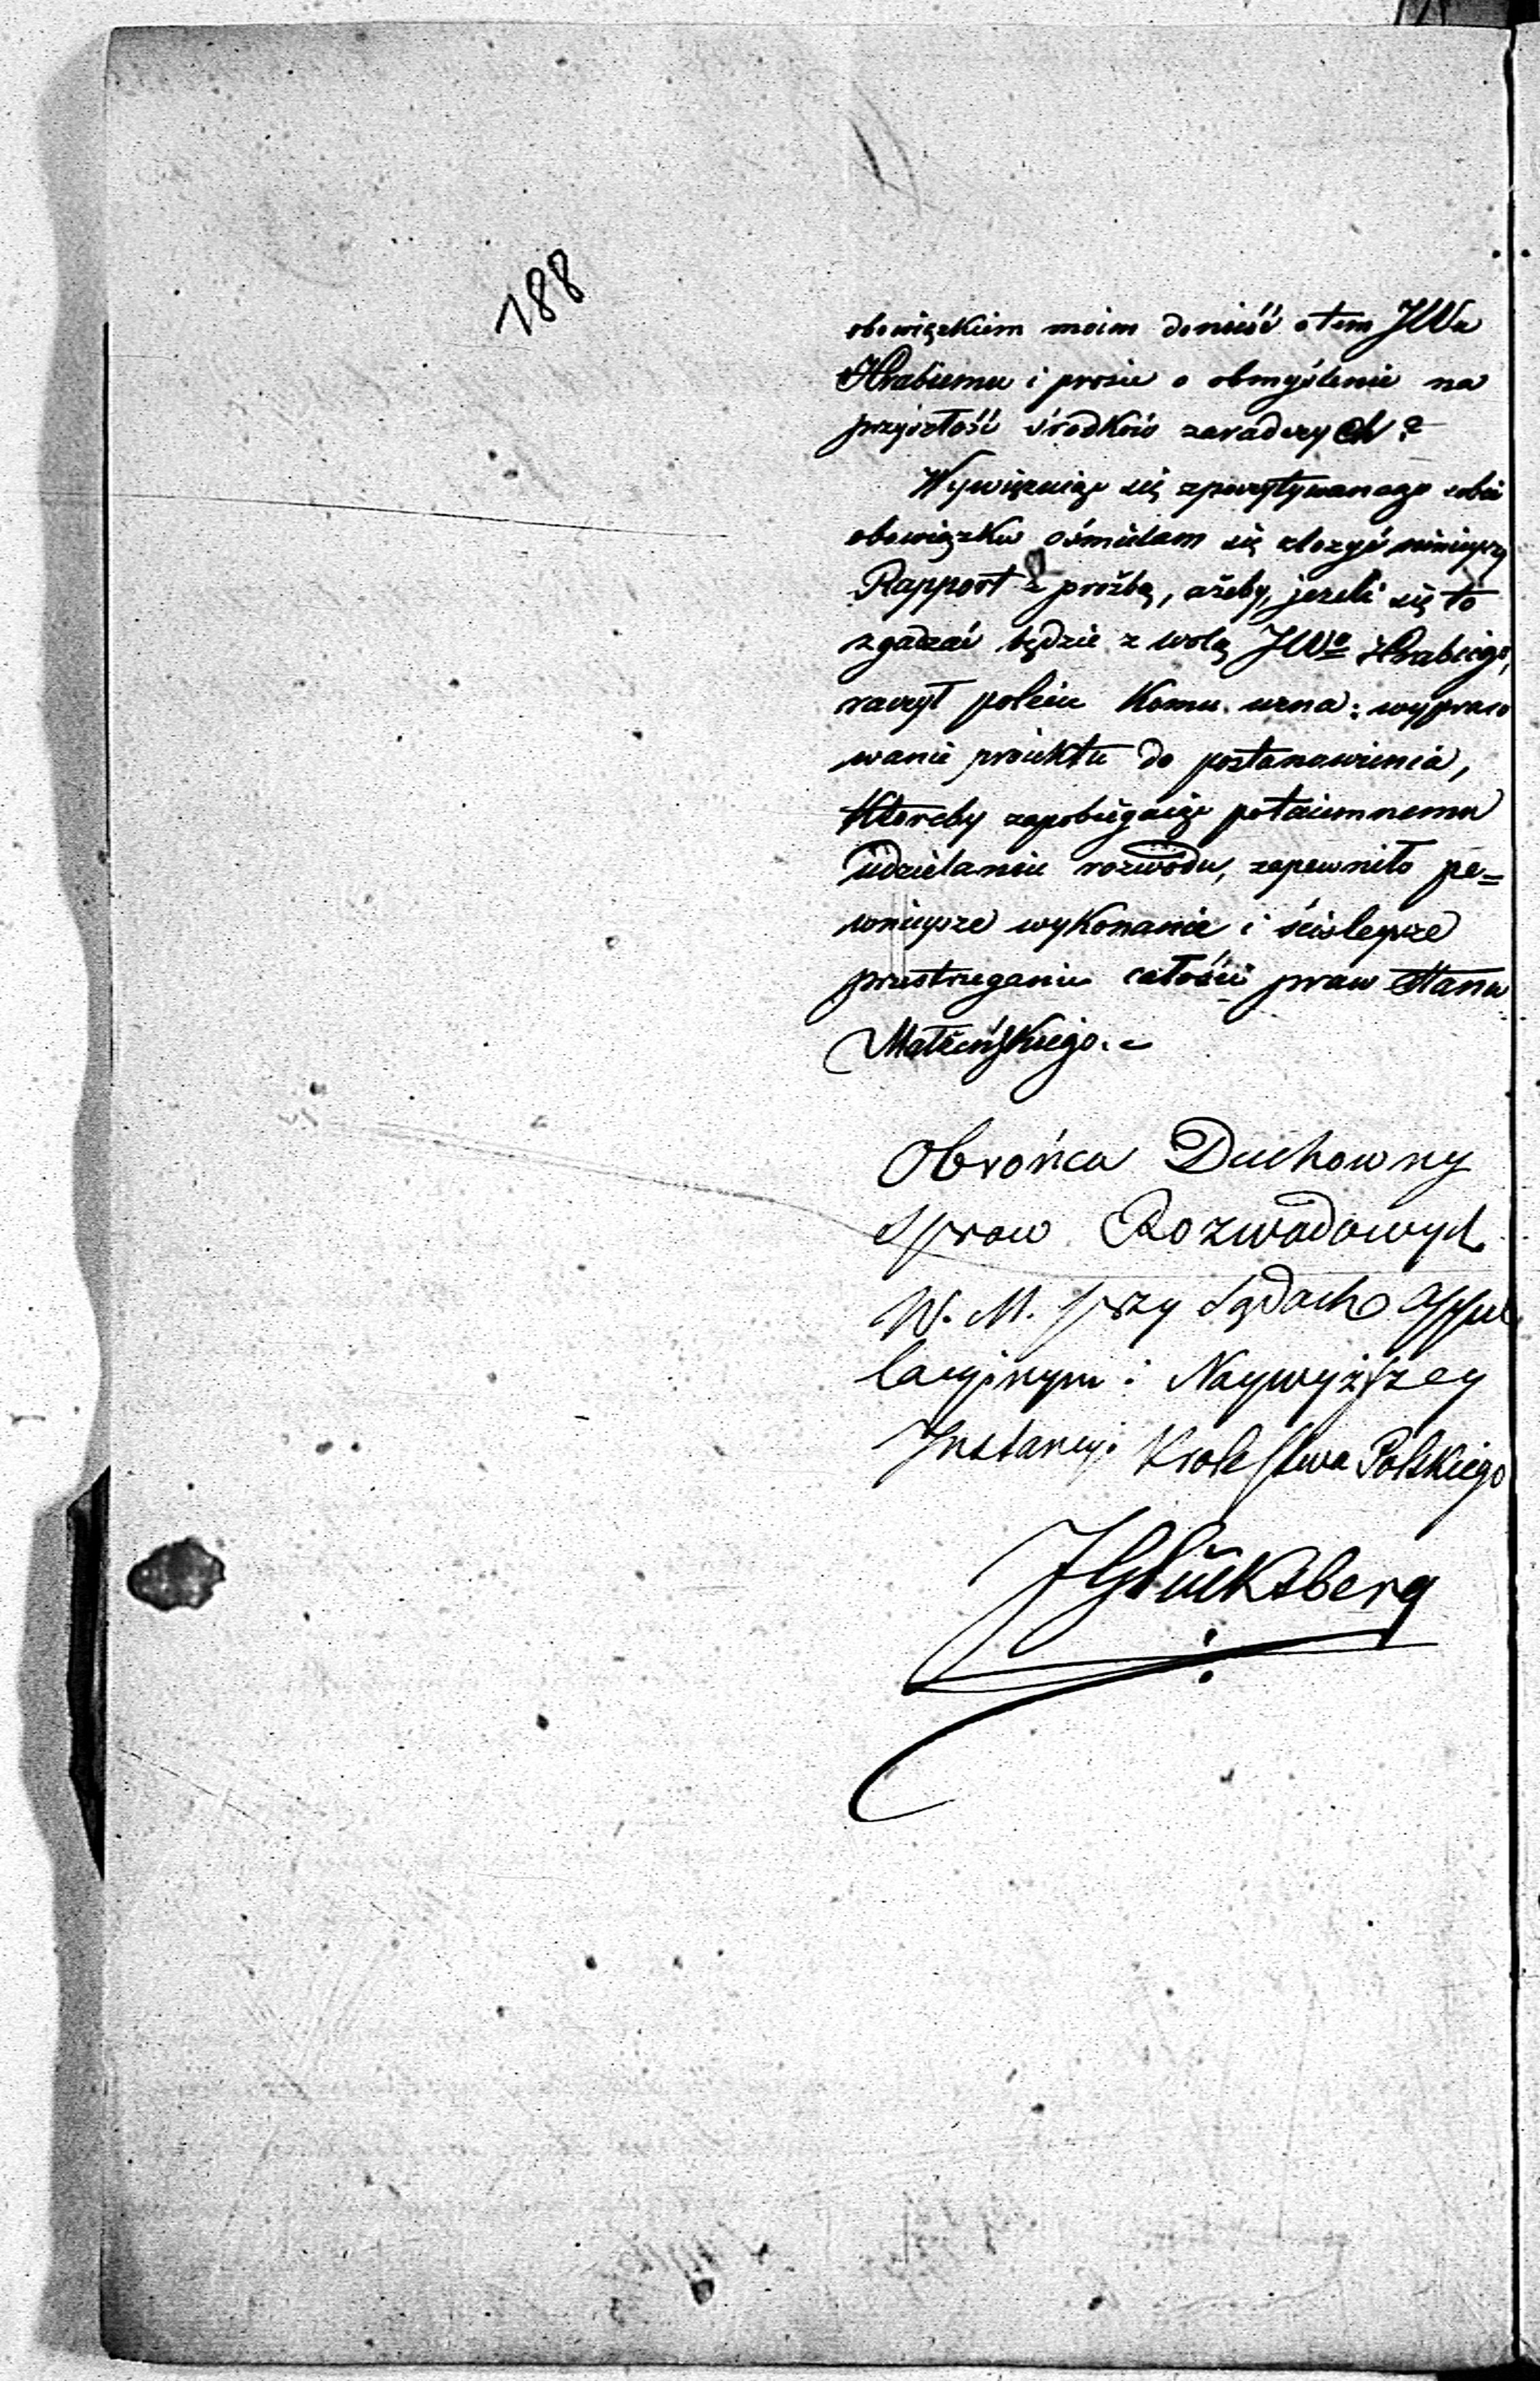 188
obowiązkiem moim donieść o tem JWu
Hrabiemu i prosić o obmyślenie na
przyszłość środków zaradczych?
Wywięzuiąc się z poczytywanego sobie
obowiązku ośmielam się złożyć niniejszy
Rapport z prośbą, ażeby, jeżeli się to
zgadzać będzie z wolą JWo Hrabiego,
raczył polecić komu uzna: wypraco
wanie proiektu do postanowienia,
któreby zapobiegaiąc potaiemnemu
udzielaniu rozwodu, zapewniło pe=
wnieysze wykonanie i ściśleysze
przestrzeganie całości praw Stanu
Małżeńskiego.
Obrońca Duchowny
Spraw Rozwodowych
W. M. przy Sądach Appel
lacyjnym i Naywyższey
Instancyi Krolestwa Polskiego
JGlücksberg